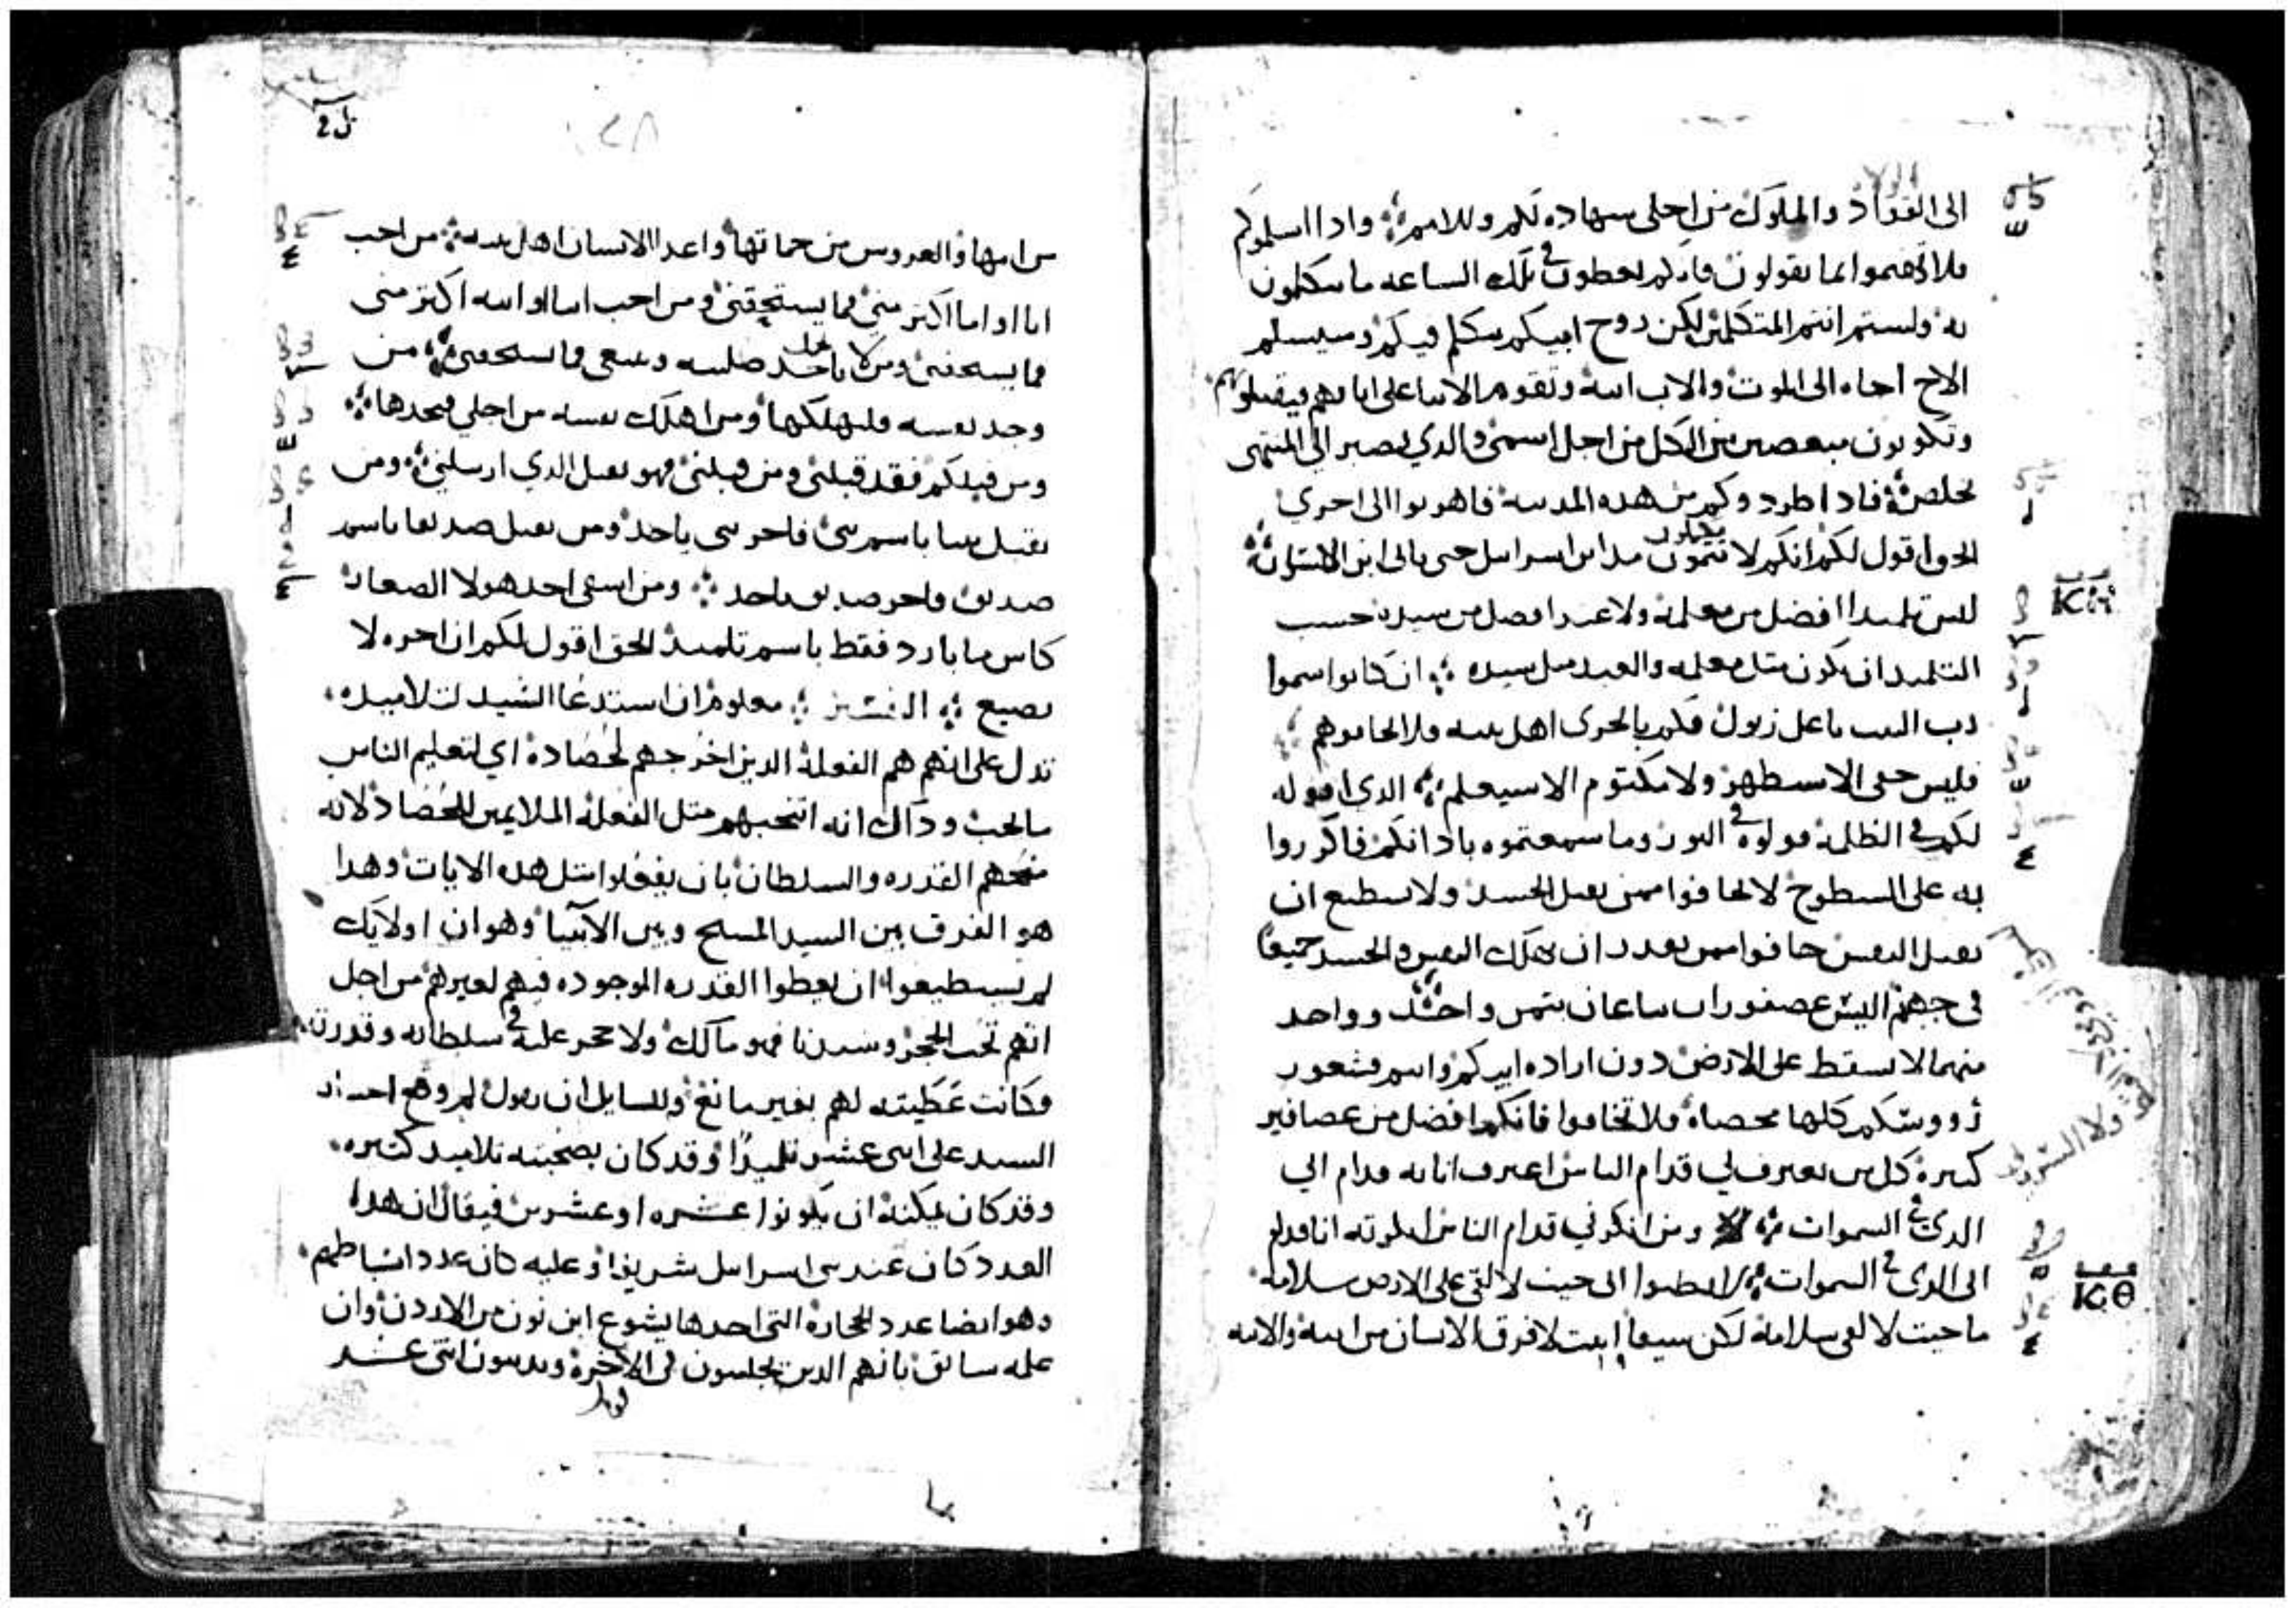 الى القواد والملوك من اجلى شهاده لكم وللامم ܀ وادا اسلموكم
فلا تهتموا بما تقولون فانكم تعطون فى تلك الساعه ما تتكلمون
به ولستم انتم المتكلمين لكن روح ابيكم يتكلم فيكم وسيسلم
الاخ اخاه الى الموت والاب ابنه وتقوم الابنا على ابايهم فيقتلونهم
وتكونون مبغضين من الكل من اجل اسمى والدي يصبر الى المنتهى
يخلص ܀ فادا طردوكم من هده المدينه فاهربوا الى اخرى
الحق اقول لكم انكم لا تتمون مداين اسراييل حتى ياتى ابن الانسان ܀
ليس تلميدا افضل من معلمه ولا عبدا افضل من سيده حسب
التلميد ان يكون مثل معلمه والعبد مثل سيده ܀ ان كانوا سموا
رب البيت باعل زبول فكم بالحرى اهل بيته فلا تخافوهم
فليس خفى الا سيظهر ولا مكتوم الا سيعلم ܀ الدي اقوله
لكم فى الظلمه قولوه فى النور وما سمعتموه بادانكم فاكرزوا
به على السطوح لا تخافوا ممن يقتل الجسد ولا يستطيع ان
يقتل النفس خافوا ممن يقدر ان يهلك النفس والجسد جميعا
فى جهنم اليس عصفوران يباعان بثمن واحد وواحد
منهما لا يسقط على الارض دون اراده ابيكم وانتم فشعور
رووسكم كلها محصاه فلا تخافوا فانكم افضل من عصافير
كثيره كل من يعترف بي قدام الناس اعترف انا به قدام ابي
الدى فى السموات ܀ ومن انكرني قدام الناس انكرته انا قدام
ابى الدى فى السموات ܀ لا تظنوا انى جيت لالقى على الارض سلامه
ما جيت لالقى سلامه لكن سيفا اتيت لافرق الانسان من ابيه والابنه
ΚΘ
من امها والعروس من حماتها واعدا الانسان اهل بيته ܀ من احب
ابا او اما اكثر منى فما يستحقنى ومن احب ابنا او ابنه اكثر منى
فما يستحقنى ومن لا ياخد صليبه ويتبعنى فما يستحقنى ܀ من
وجد نفسه فليهلكها ومن اهلك نفسه من اجلي فيجدها ܀
ومن قبلكم فقد قبلنى ومن قبلنى فهو يقبل الدي ارسلنى ܀ ومن
يقبل نبيا باسم نبى فاجر نبى ياخد ومن يقبل صديقا باسم
صديق فاجر صديق ياخد ܀ ومن اسقى احد هولا الصغار
كاس ما بارد فقط باسم تلميد الحق اقول لكم ان اجره لا
يضيع ܀ التفسير ܀ معلوم ان استدعا السيد لتلاميده
تدل على انهم هم الفعله الدين اخرجهم لحصاده اي لتعليم الناس
مالحب وداك انه انتخبهم متل الفعله الملايمين للحصاد لانه
منحهم القدره والسلطان بان يفعلوا متل هده الايات وهدا
هو الفرق بين السيد المسيح وبين الانبيا وهو ان اولايك
لم يستطيعوا ان يعطوا القدره الموجوده فيهم لغيرهم من اجل
انهم تحت الحجر وسيدنا فهو مالك ولا حجر عليه فى سلطانه وقدرته
فكانت عطيته لهم بغير مانع وللسايل ان يقول لم وقع اختيار
السيد على اتنى عشر تلميدا وقد كان بصحبته تلاميد كتيره
وقد كان يمكنه ان يكونوا عشره او عشرين فيقال ان هدا
العدد كان عند بنى اسراييل شريفا وعليه كان عدد اسباطهم
وهو ايضا عدد الحجاره التى اخدها يشوع ابن نون من الاردن وان
علمه سابق بانهم الدين يجلسون فى الاخره ويدينون اتنى عشر